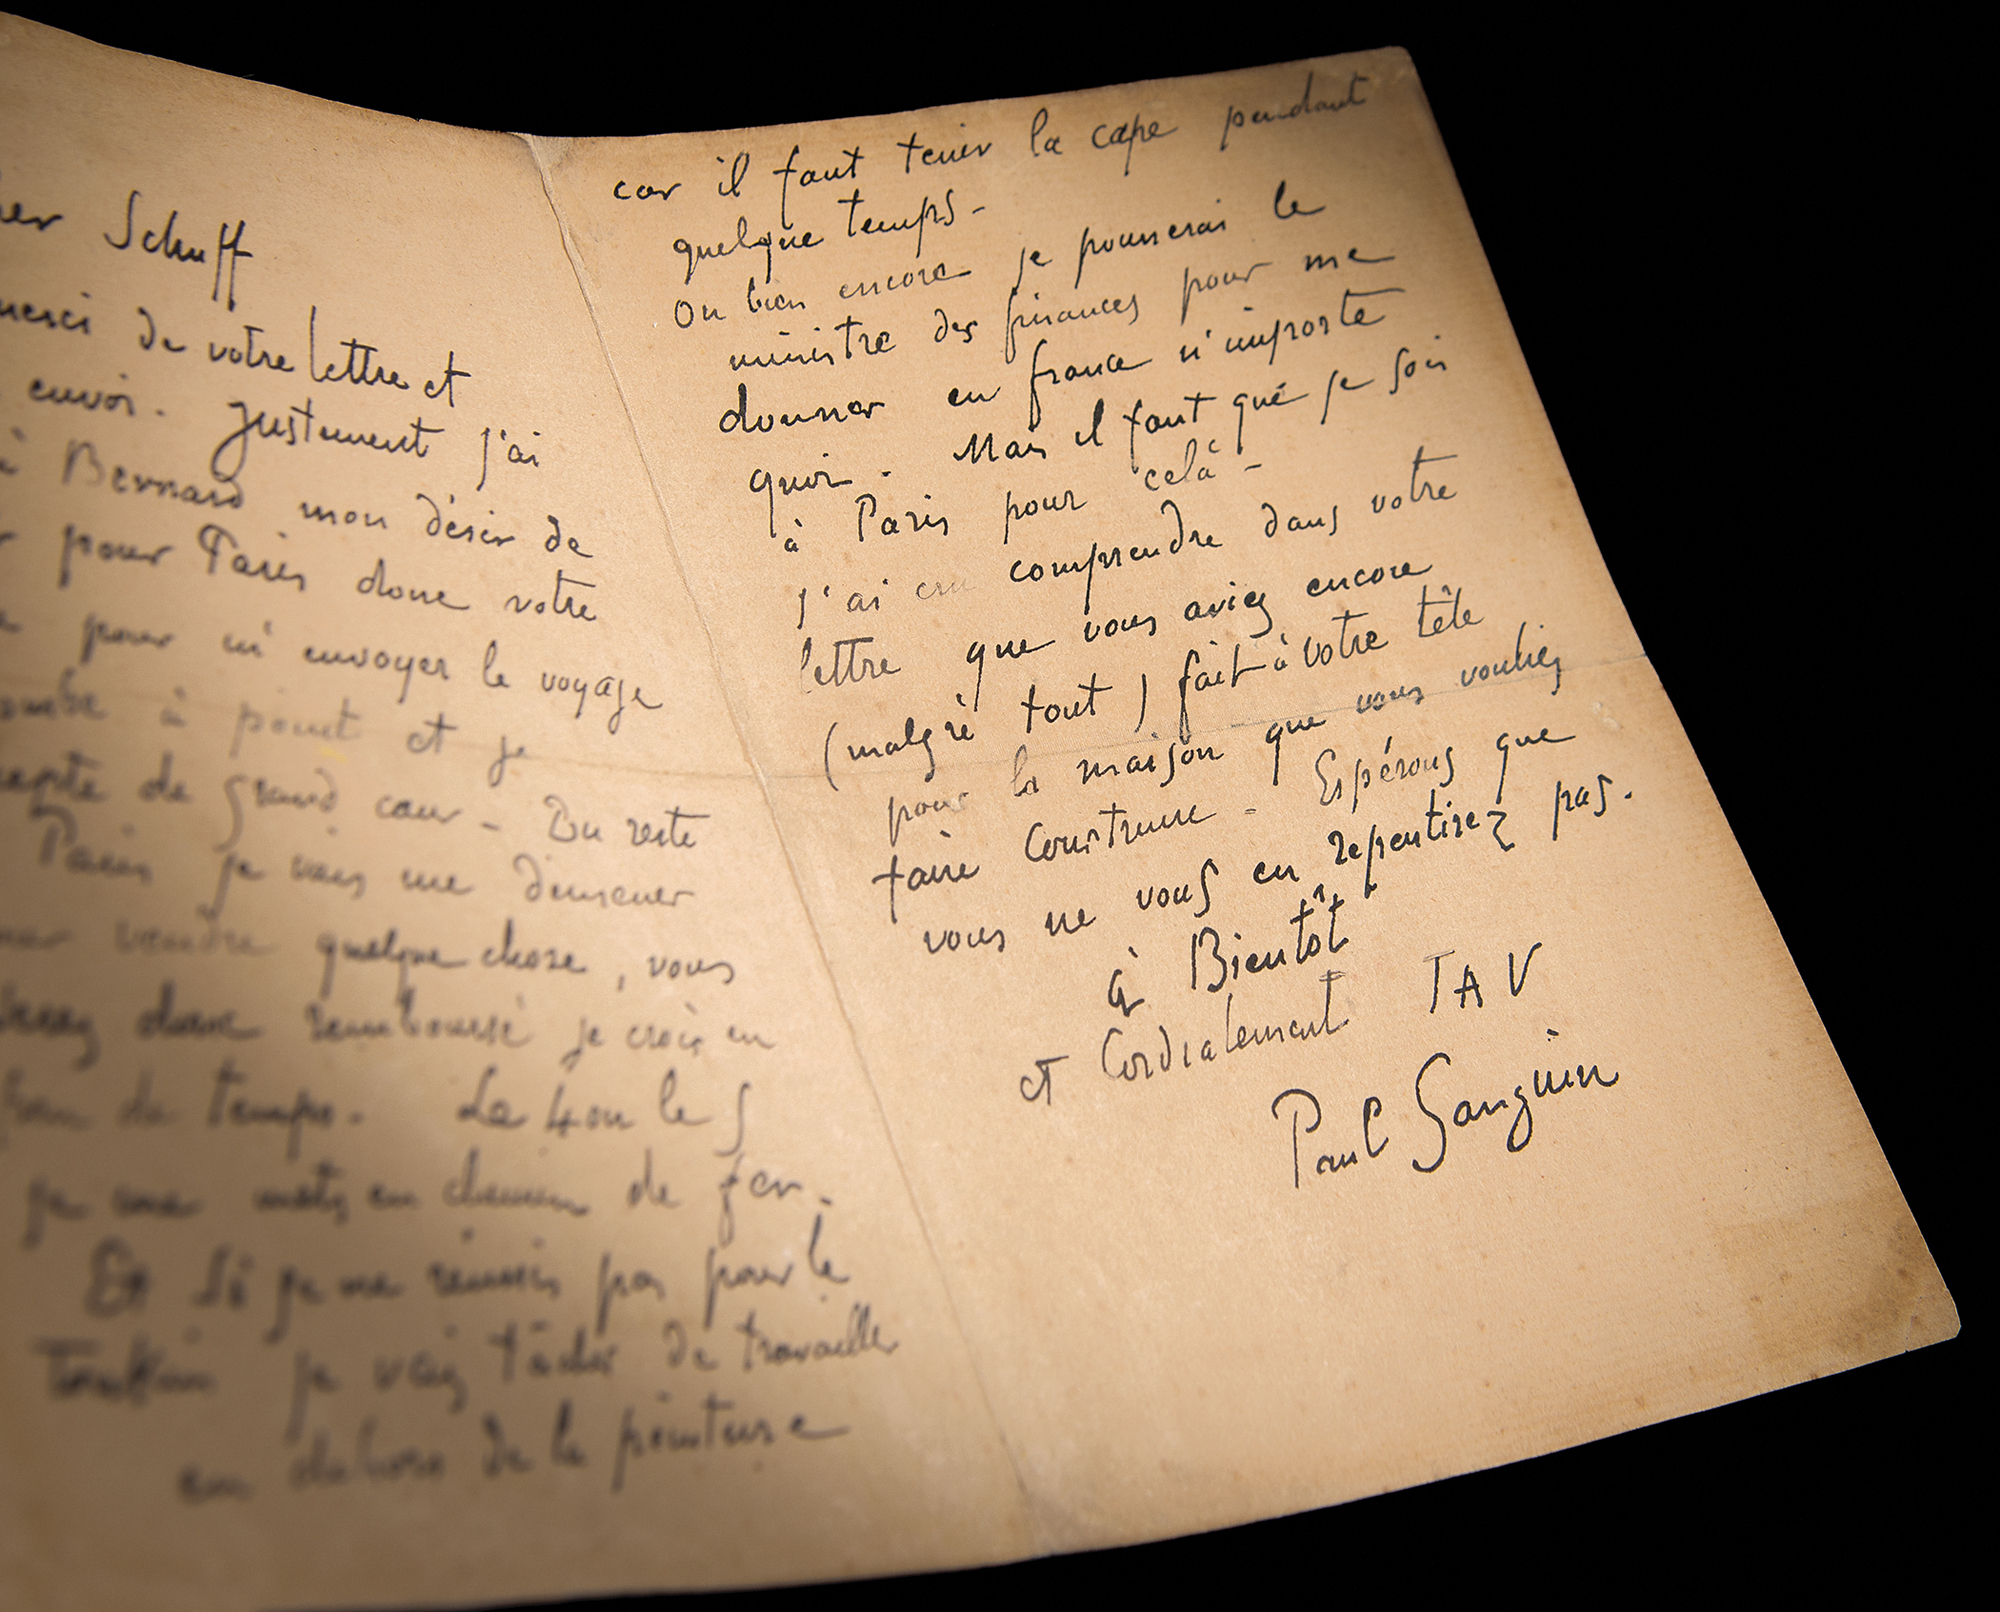 Schuff
merci de votre lettre et
envoi. Justement j'ai
à Bernard mon désir de
pour Paris donc votre
pour m'envoyer le voyage
tombe à point et je
accepte de grand cœur - Du reste
Paris je vais me démener
vendre quelque chose, vous
donc remboursé je crois en
de temps. Le 4 ou le 5
je me mets en chemin de fer.
Et si je ne réussis pas pour le
Tonkin je vais tâcher de travailler
en dehors de la peinture
car il faut tenir la cape pendant
quelque temps -
Ou bien encore je pousserai le
ministre des finances pour me
donner en france n'importe
quoi. Mais il faut que je sois
à Paris pour celà -
J'ai cru comprendre dans votre
lettre que vous aviez encore
(malgré tout) fait à votre tête
pour la maison que vous vouliez
faire Construire - Espérons que
vous ne vous en repentirez pas.
à Bientôt
et Cordialement TAV
Paul Gauguin